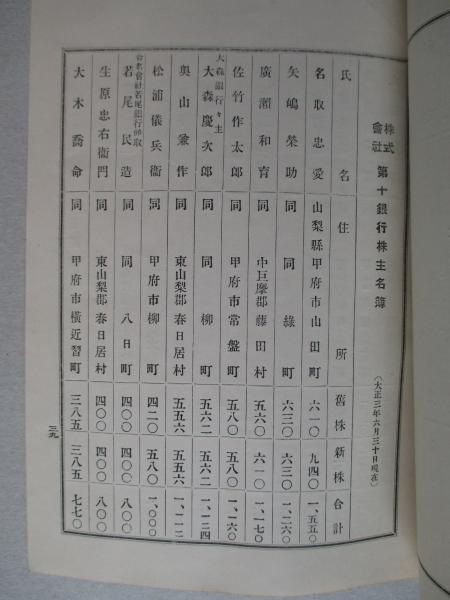 株式會社 第十銀行株主名簿
(大正三年六月三十日現在)
氏名 住所 舊株 新株 合計
名取忠愛 山梨縣甲府市山田町 六一〇 九四〇 一、五五〇
矢嶋榮助 同 同 綠町 六三〇 六三〇 一、二六〇
廣瀨和育 同 中巨摩郡藤田村 五六〇 六一〇 一、一七〇
佐竹作太郎 同 甲府市常盤町 五八〇 五八〇 一、一六〇
大森銀行々主 大森慶次郎 同 同 柳町 五六二 五六二 一、一二四
奧山兼作 同 東山梨郡春日居村 五五六 五五六 一、一一二
松浦儀兵衞 同 甲府市柳町 四二〇 五八〇 一、〇〇〇
合名會社若尾銀行頭取 若尾民造 同 同 八日町 四〇〇 四〇〇 八〇〇
生原忠右衞門 同 東山梨郡春日居村 四〇〇 四〇〇 八〇〇
大木喬命 同 甲府市橫近習町 三八五 三八五 七七〇
三九